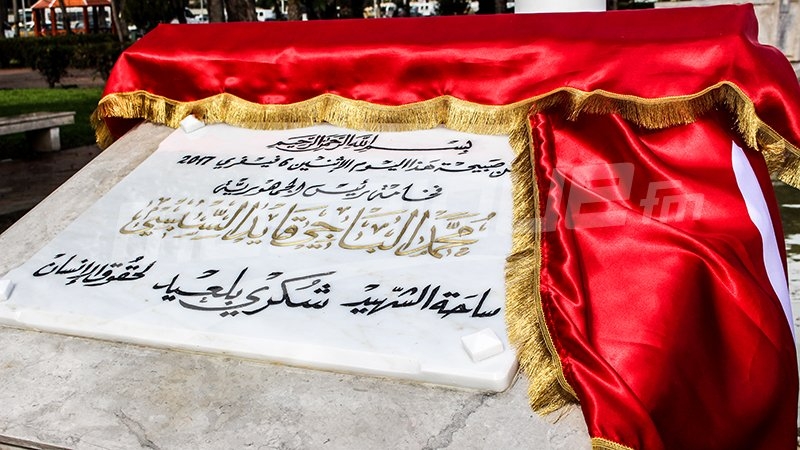 بسم الله الرحمن الرحيم
من صبيحة هذا اليوم الإثنين 6 فيفري 2017
فخامة رئيس الجمهورية
محمد الباجي قايد السبسي
ساحة الشهيد شكري بلعيد لحقوق الإنسان
fm